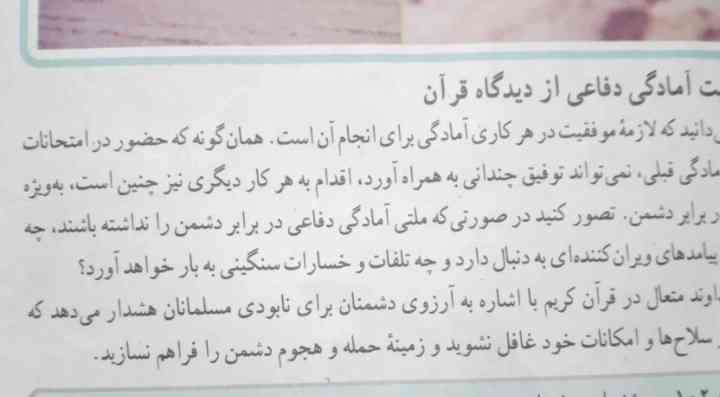 آمادگی دفاعی از دیدگاه قرآن
دانید که لازمهٔ موفقیت در هر کاری آمادگی برای انجام آن است. همان‌گونه که حضور در امتحانات
مادگی قبلی، نمی‌تواند توفیق چندانی به همراه آورد، اقدام به هر کار دیگری نیز چنین است، به‌ویژه
ر برابر دشمن. تصور کنید در صورتی‌که ملتی آمادگی دفاعی در برابر دشمن را نداشته باشند، چه
پیامدهای ویران‌کننده‌ای به دنبال دارد و چه تلفات و خسارات سنگینی به بار خواهد آورد؟
اوند متعال در قرآن کریم با اشاره به آرزوی دشمنان برای نابودی مسلمانان هشدار می‌دهد که
سلاح‌ها و امکانات خود غافل نشوید و زمینهٔ حمله و هجوم دشمن را فراهم نسازید.